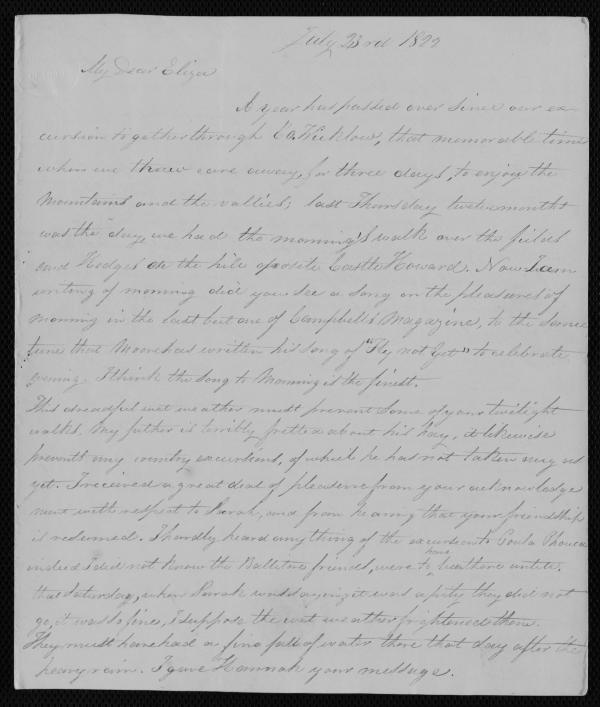 July 23rd 1822
My Dear Eliza
A year has passed over since our ex
cursion together through Co. Wicklow, that memorable time
when we threw care away, for three days, to enjoy the
Mountains and the vallies; last Thursday twelvemonths
was the day, we had the morning's walk over the fields
and Hedges on the hill oposite Castle Howard. Now I am
writing of morning did you see a song on the pleasures of
morning in the last but one of Campbell's Magazine, to the same
tune that Moore has written his song of "Fly not yet" to celebrate
evening. I think the song to Morning is the finest.
This dreadful wet weather must prevent some of your twilight
walks. My father is terribly fretted about his hay, it likewise
prevents any country excursions, of which he has not taken any us
yet. I received a great deal of pleasure from your acknowledge
ment with respect to Sarah, and from hearing that your friendship
is redeemed. I hardly heard any thing of the excursion to Poula Phouca
indeed I did not know the Ballitore friends, were to have been there until
that Saturday, when Sarah was saying it was a pity they did not
go, it was so fine, I suppose the wet weather frightened them.
They must have had a fine fall of water there that day after the
heavy rain. I gave Hannah your message.